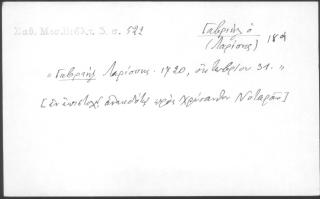 Σαθ. Μεσ. Βιβλ. τ. 3. σ. 522
Γαβριήλ ὁ
(Λαρίσης) 18 α
"Γαβριήλ Λαρίσσης. 1720, ὀκτωβρίου 31."
[ἐν ἐπιστολῇ ἀνεκδότῳ πρὸς Χρύσανθον Νοταρᾶν]